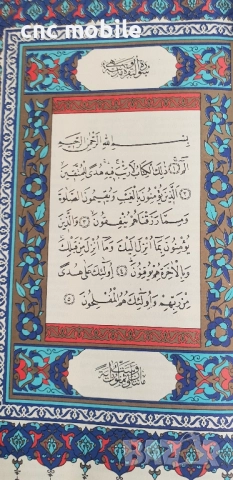 cnc mobile
سورة البقرة
بسم الله الرحمن الرحيم
الٓمٓ ﴿١﴾ ذٰلِكَ الْكِتَابُ لَا رَيْبَ فِيهِ هُدًى لِلْمُتَّقِينَ
﴿٢﴾ اَلَّذِينَ يُؤْمِنُونَ بِالْغَيْبِ وَيُقِيمُونَ الصَّلٰوةَ
وَمِمَّا رَزَقْنَاهُمْ يُنْفِقُونَ ﴿٣﴾ وَالَّذِينَ
يُؤْمِنُونَ بِمَٓا اُنْزِلَ اِلَيْكَ وَمَٓا اُنْزِلَ مِنْ قَبْلِكَ
وَبِالْاٰخِرَةِ هُمْ يُوقِنُونَ ﴿٤﴾ اُولٰٓئِكَ عَلٰى هُدًى
مِنْ رَبِّهِمْ وَاُولٰٓئِكَ هُمُ الْمُفْلِحُونَ ﴿٥﴾